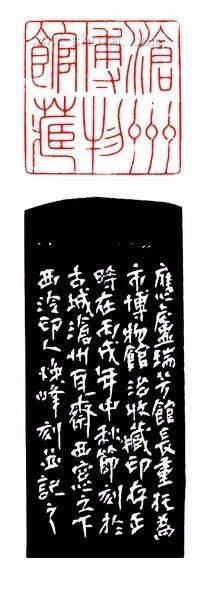 滄州
博物
館藏
應盧瑞芳館長重托為
市博物館治收藏印存正
時在丙戌年中秋節刻於
古城滄州瓦齋西窗之下
西泠印人焕峰刻並記之